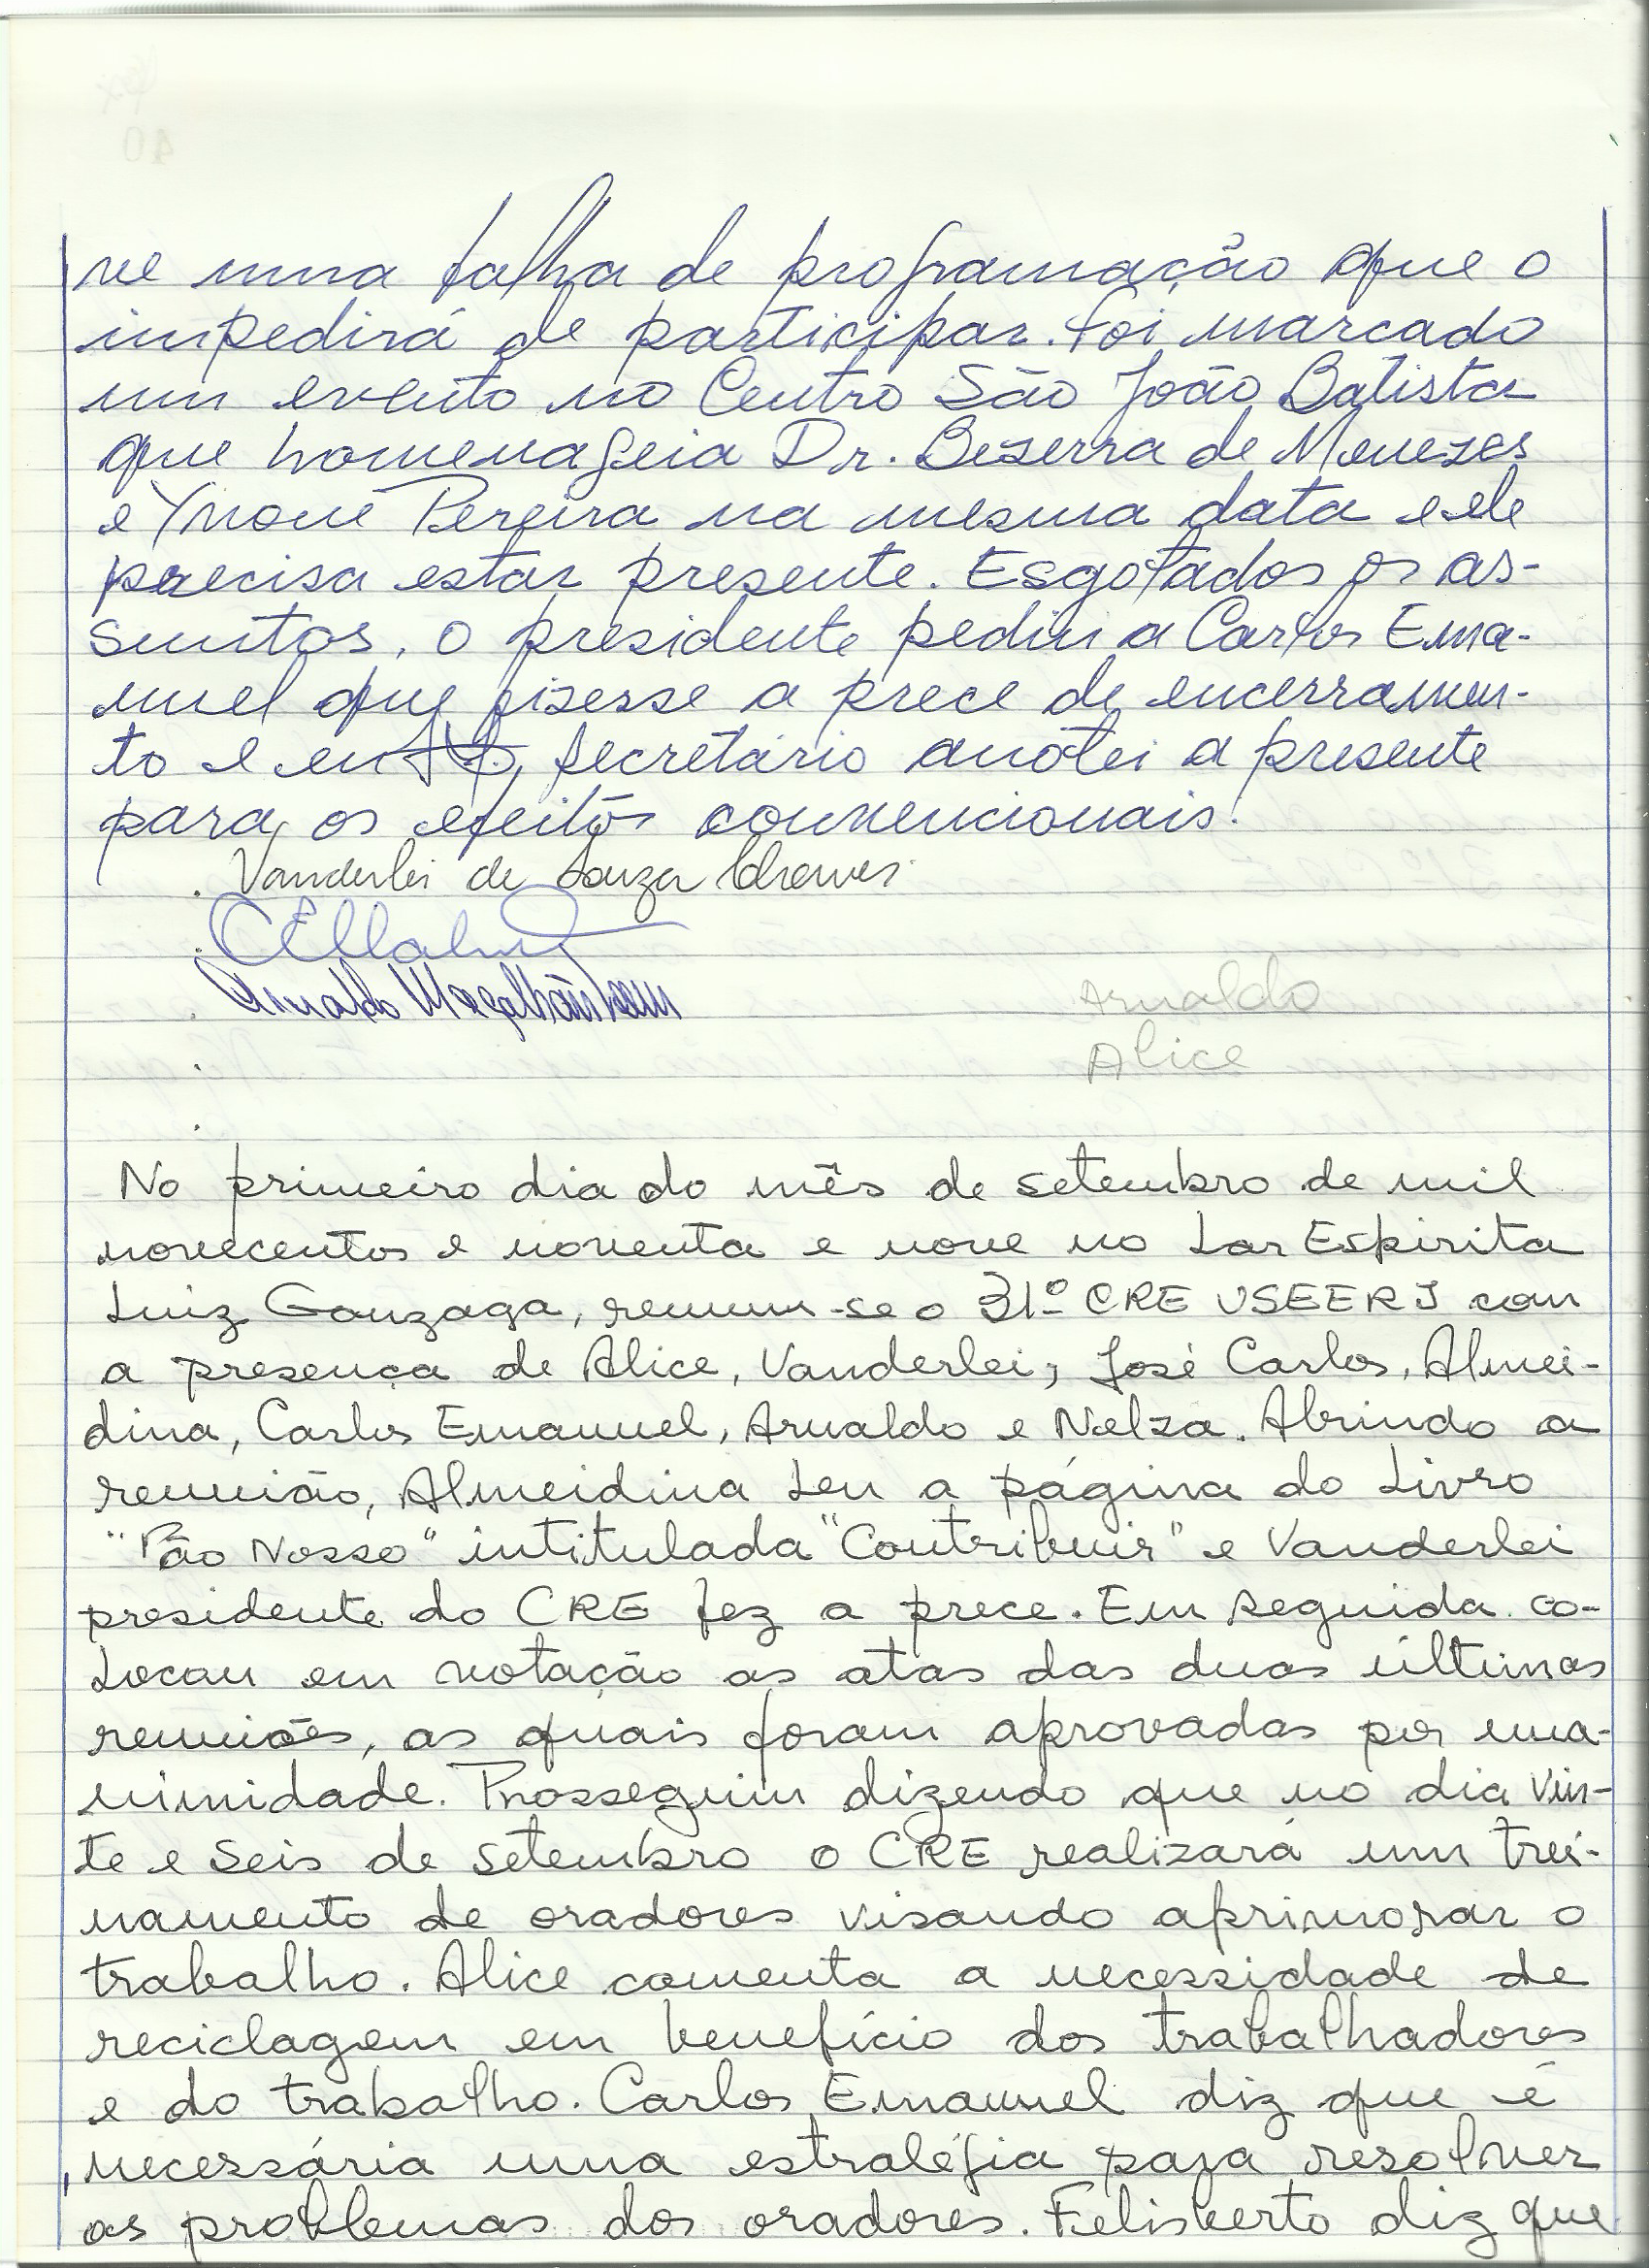 ve uma falha de programação que o
impedirá de participar. Foi marcado
um evento no Centro São João Batista
que homenageia Dr. Bezerra de Menezes
e Yvone Pereira na mesma data e ele
precisa estar presente. Esgotados os as-
suntos, o presidente pediu a Carlos Ema-
nuel que fizesse a prece de encerramen-
to e eu secretário anotei a presente
para os efeitos convencionais.
. Vanderlei de Souza Chaves.
.
. Arnaldo
Arnaldo
. Alice
.
No primeiro dia do mês de setembro de mil
novecentos e noventa e nove no Lar Espirita
Luiz Gonzaga, reuniu-se o 31º CRE USEERJ com
a presença de Alice, Vanderlei, José Carlos, Almei-
dina, Carlos Emanuel, Arnaldo e Nelza. Abrindo a
reunião, Almeidina leu a página do Livro
"Pão Nosso" intitulada "Contribuir" e Vanderlei
presidente do CRE fez a prece. Em seguida co-
locou em votação as atas das duas últimas
reuniões, as quais foram aprovadas por una-
nimidade. Prosseguiu dizendo que no dia vin-
te e seis de setembro o CRE realizará um trei-
namento de oradores visando aprimorar o
trabalho. Alice comenta a necessidade de
reciclagem em benefício dos trabalhadores
e do trabalho. Carlos Emanuel diz que é
necessária uma estratégia para resolver
os problemas dos oradores. Felisberto diz que